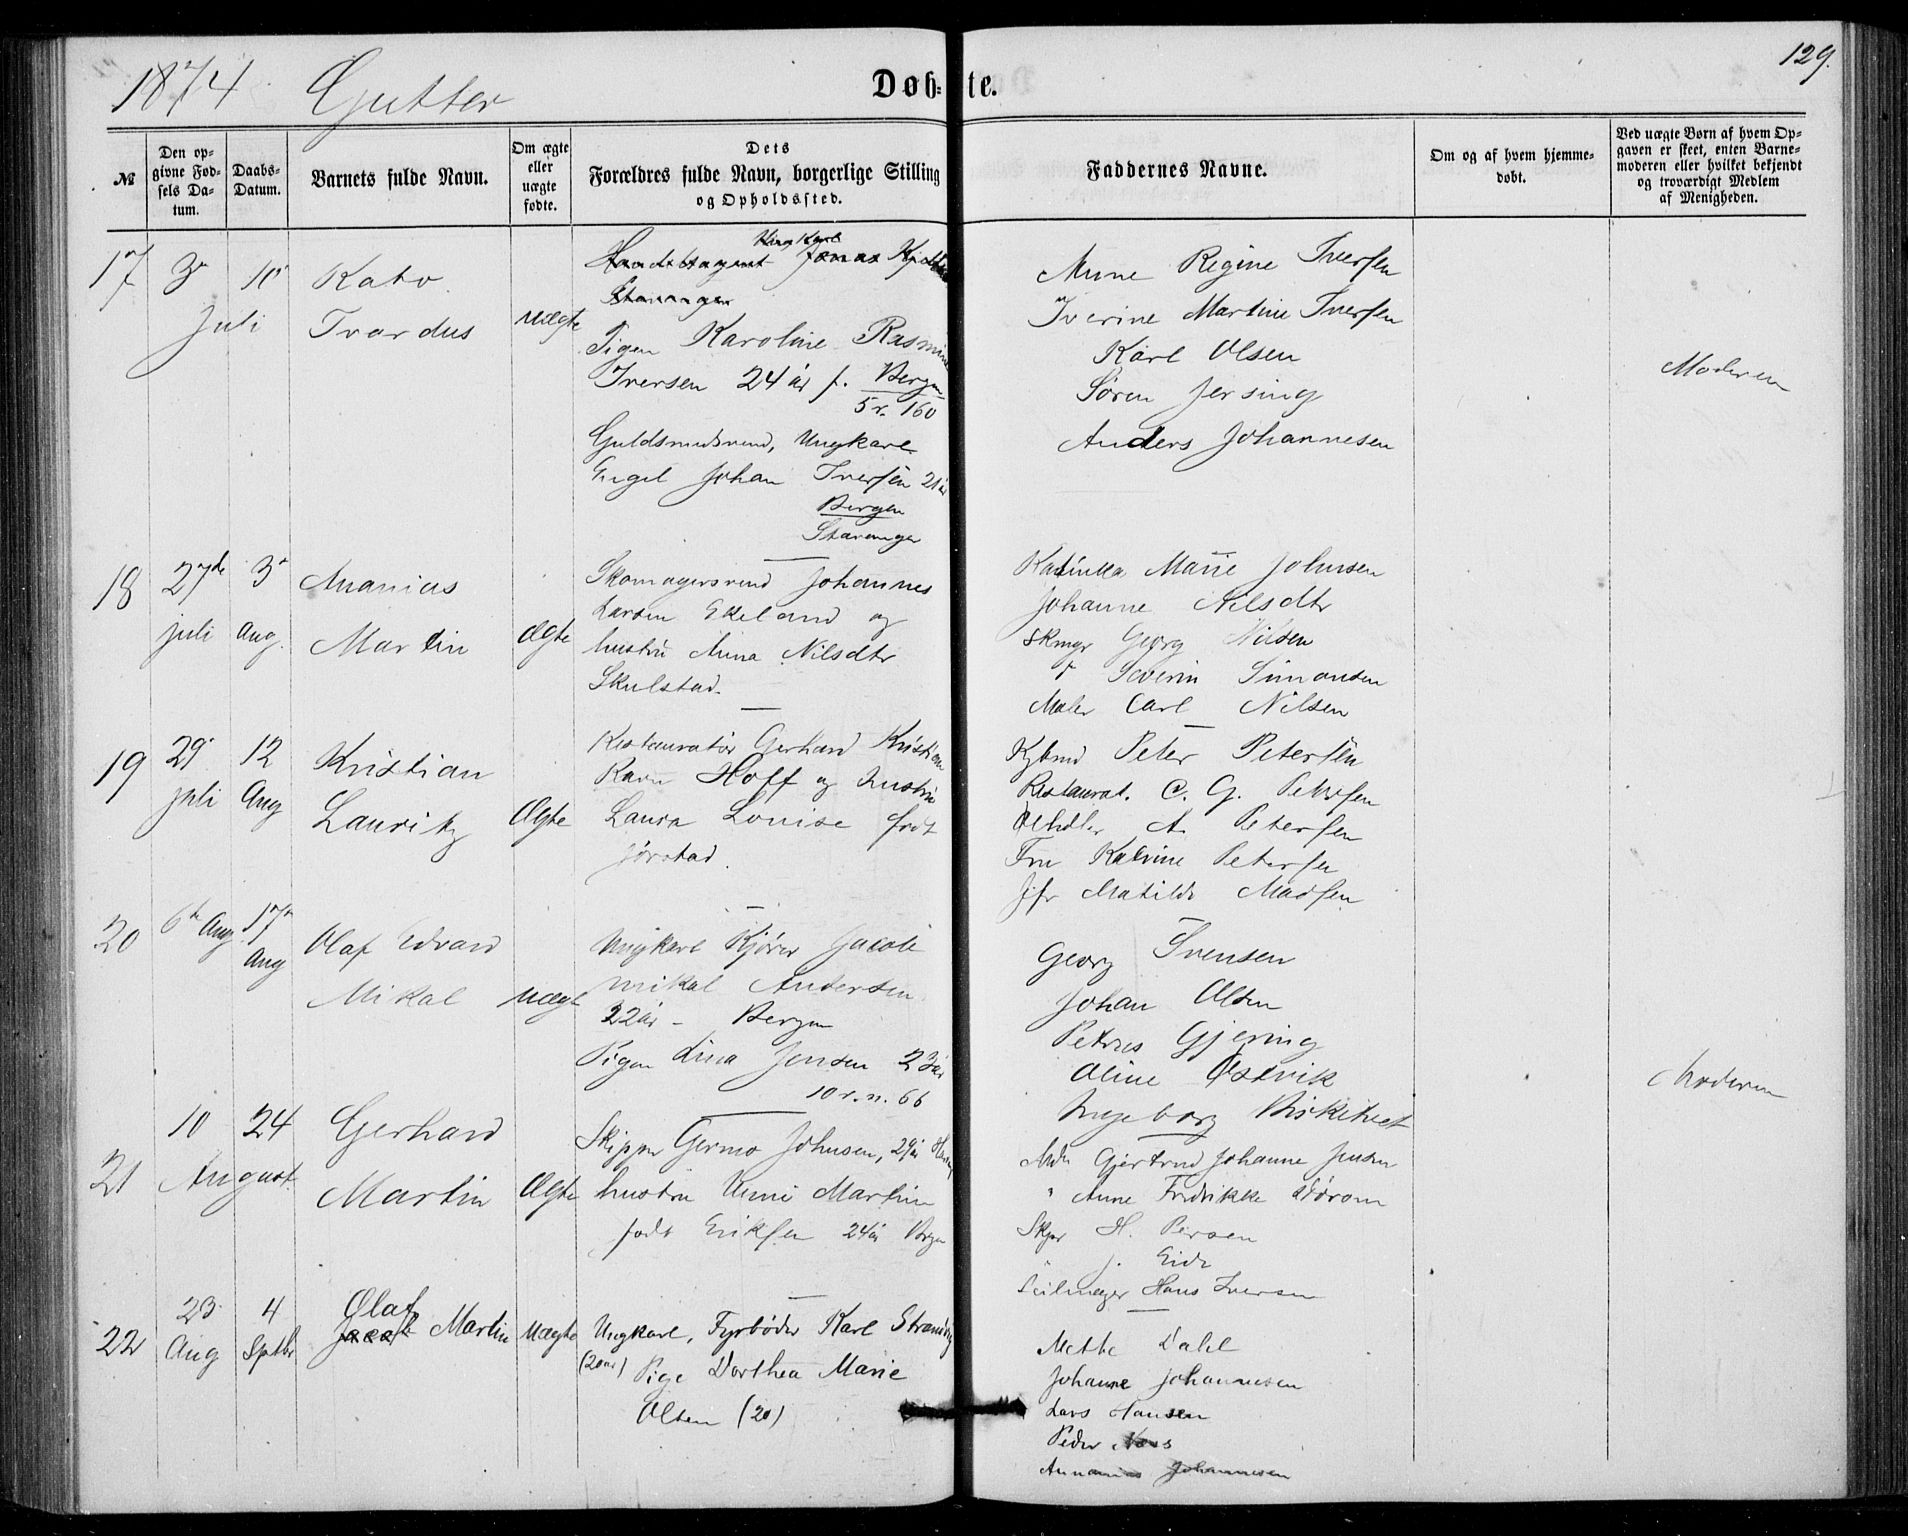 129.
1874 Gutter
Døb- te.
№
Den op-
givne Fød-
sels Da-
tum.
Daabs-
Datum.
Barnets fulde Navn.
Om ægte
eller
uægte
fødte.
Dets
Forældres fulde Navn, borgerlige Stilling
og Opholdssted.
Faddernes Navne.
Om og af hvem hjemme-
døbt.
Ved uægte Børn af hvem Op-
gaven er skeet, enten Barne-
moderen eller hvilket bekjendt
og troværdigt Medlem
af Menigheden.
17 3 10
Juli
Kato
Tvardus
uægte
Handelsagent Jonas
Stavanger
Pigen Karoline Rasmine
Iversen 24 år f. Bergen
5 r. 160
Guldsmedsvend, Ungkarl
Engel Johan Iversen 21 år
Bergen
Stavanger
Anne Regine Iversen
Iverine Martine Iversen
Karl Olsen
Søren Jersing
Anders Johannesen
Moderen
18 27de 3
juli Aug.
Ananias
Martin
Ægte
Skomagersvend Johannes
Larsen Ekeland og
hustru Anna Nilsdtr
Skulstad.
Katinka Marie Johnsen
Johanne Nilsdtr
Skmgr Georg Nilsen
" Severin Simonsen
Maler Carl Nilsen
19 29 12
juli Aug
Kristian
Lauritz
Ægte
Restauratør Gerhard Kristian
Ravn Hoff og hustru
Laura Louise født
Jørstad.
Peter Petersen
Restaurat. C. G. Petersen
A. Petersen
Fru Katrine Petersen
Jfr Matilde Madsen
20 6te Aug 17de
Aug
Olaf Edvard
Mikal
uægte
Ungkarl Kjører Jacob
Mikal Andersen
22 år - Bergen
Pigen Lina Jensen 23 år
10 r. n. 66
Georg Svensen
Johan Olsen
Petrus Gjering
Oline Østvik
Ingeborg Birketvedt
Moderen
21 10 24
August.
Gerhard
Martin
Ægte
Skipper Germo Johnsen, 29 år
hustru Anni Martine
født Eriksen 24 år Bergen
Gjertrud Johanne Jensen
" Anne Fredrikke
Skpr H. Persen
" J. Eide
Seilmager Hans Iversen
22 23 4
Aug Septbr
Olaf
Jacob Martin
Uægte
Ungkarl, Fyrbøder Karl
(20 år) Pige Dorthea Marie
Olsen (20)
Mette Dahl
Johanne Johannesen
Lars Hansen
Peder Næss
Annanias Johannesen